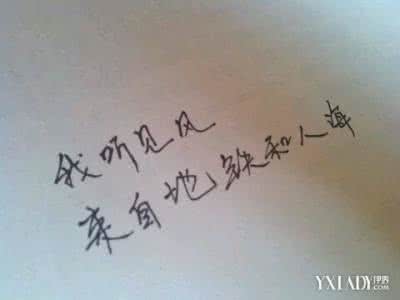 我听见风
来自地铁和人海
YXLADY.COM伊秀